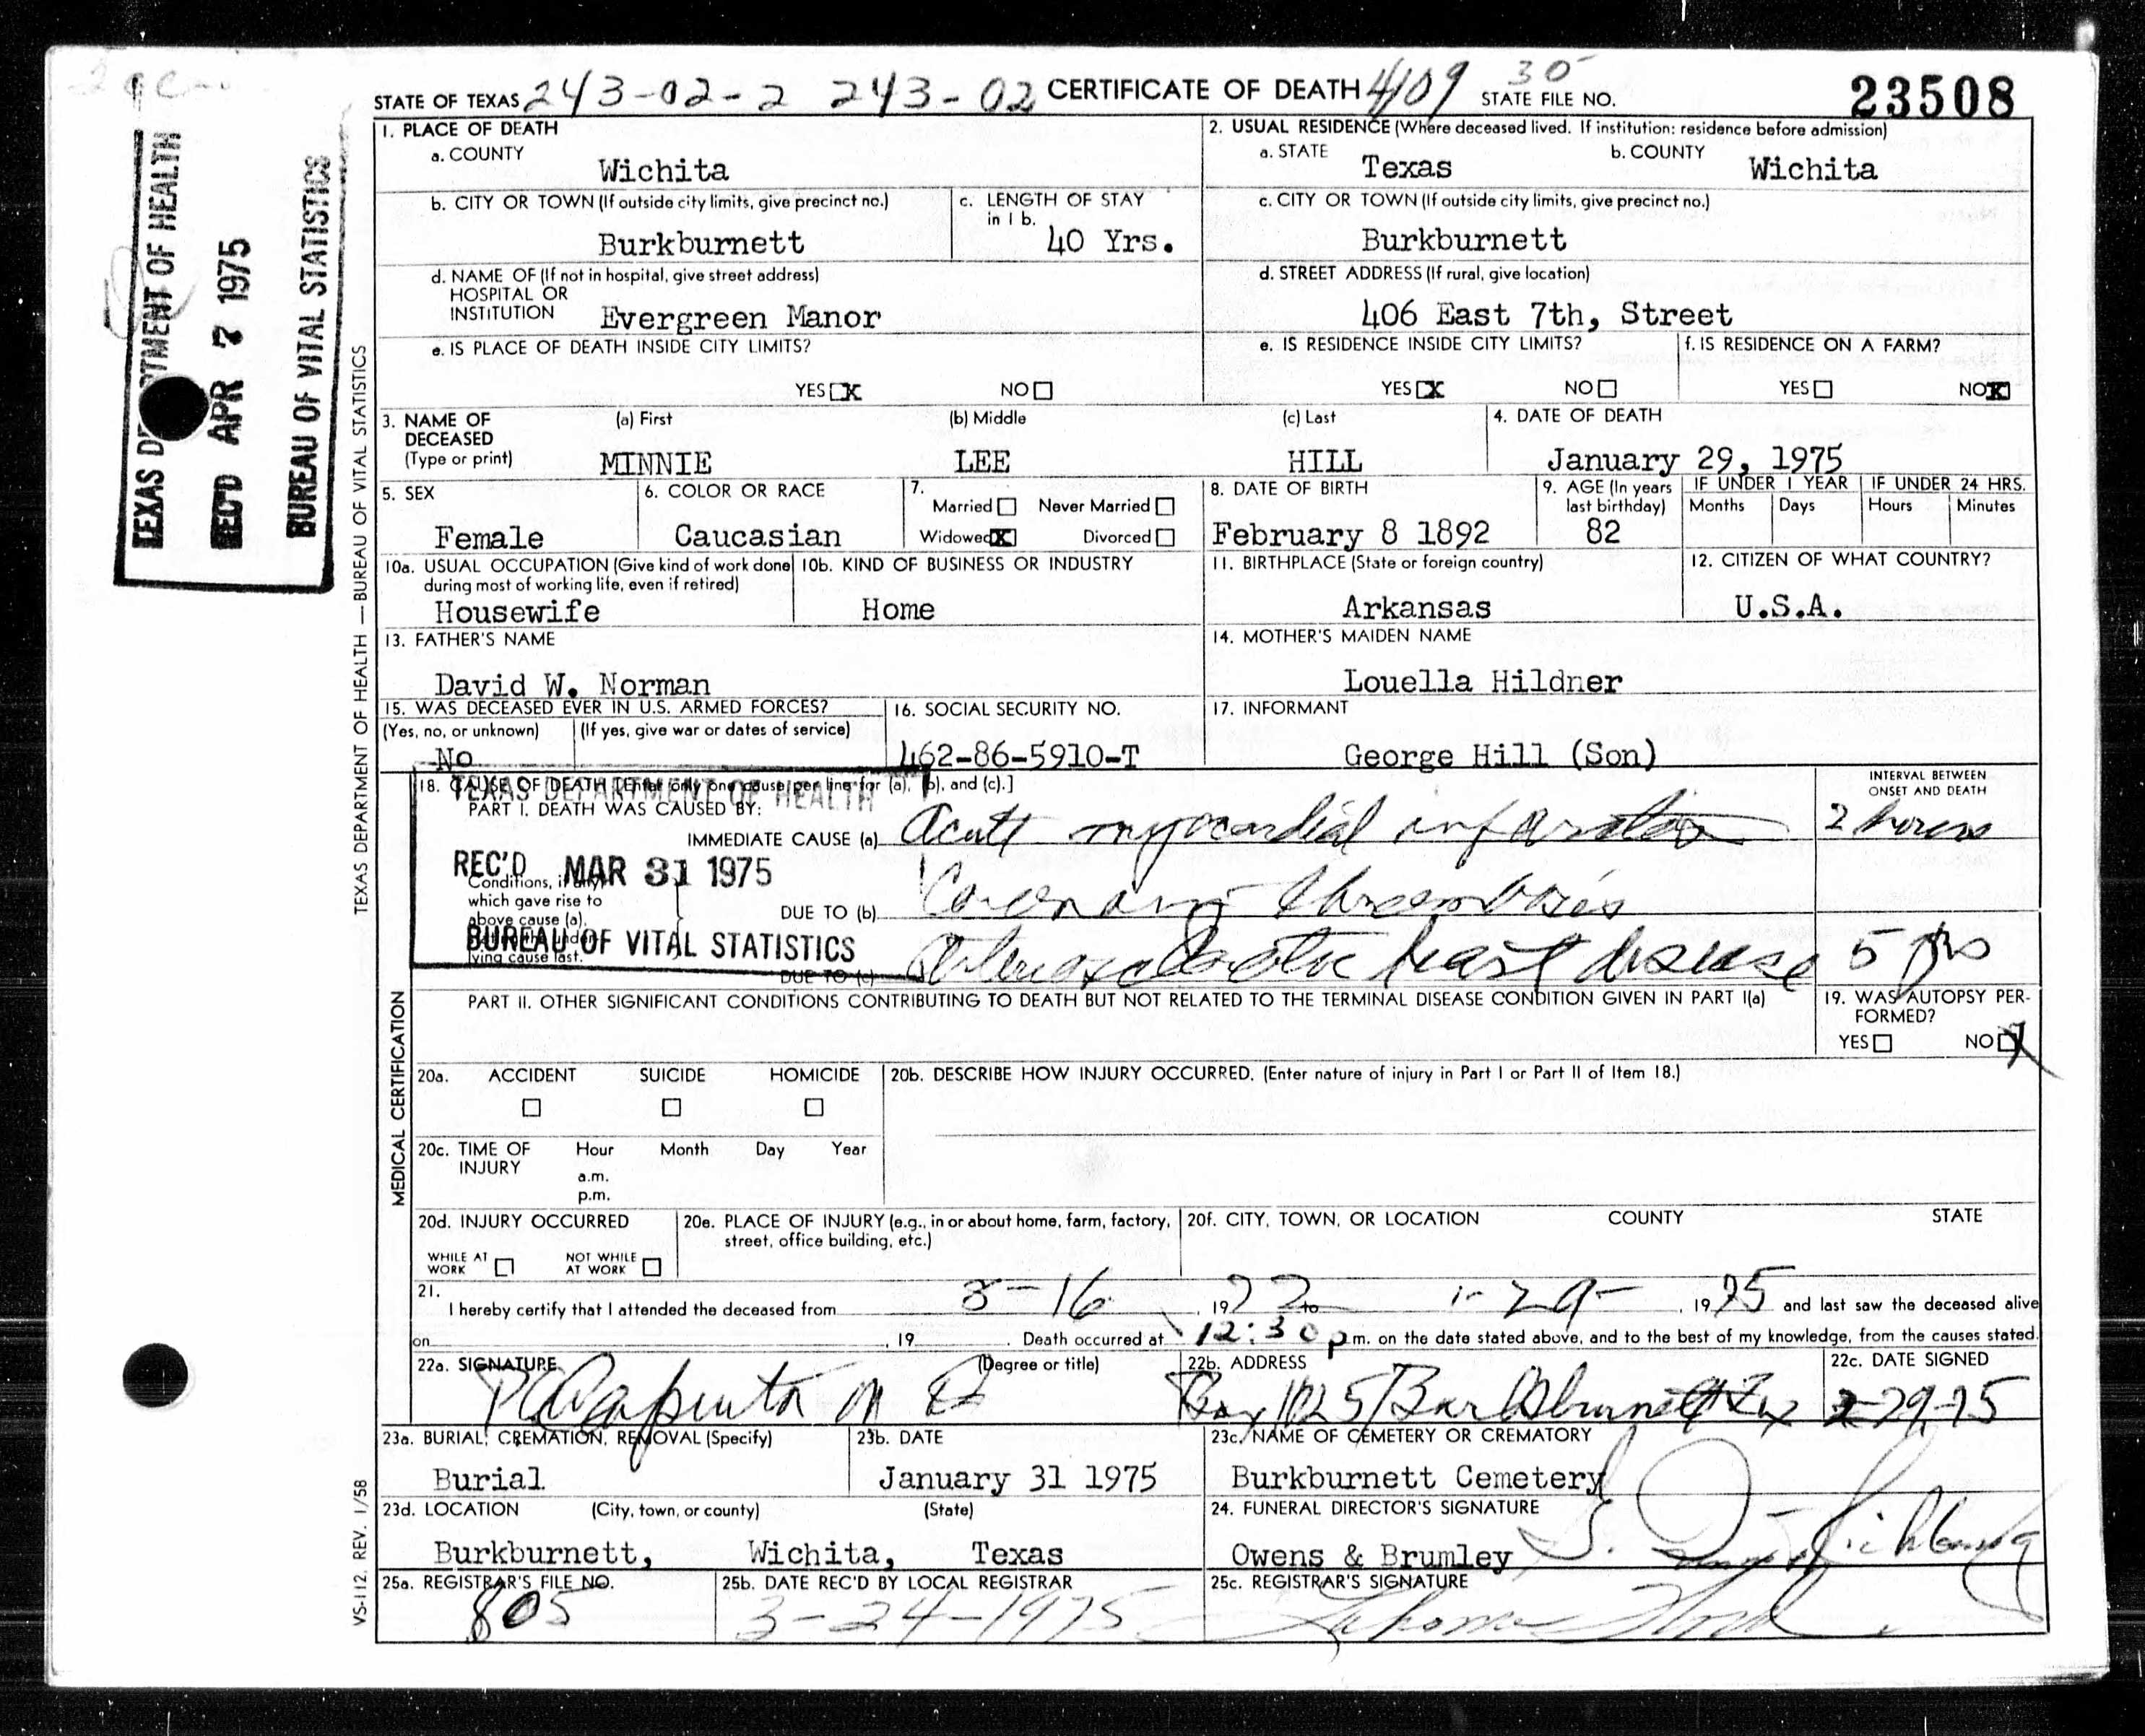 STATE OF TEXAS 243-02-2 243-02 CERTIFICATE OF DEATH 4109 30 STATE FILE NO. 23508
TEXAS DEPARTMENT OF HEALTH
REC'D APR 7 1975
BUREAU OF VITAL STATISTICS
TEXAS DEPARTMENT OF HEALTH — BUREAU OF VITAL STATISTICS
1. PLACE OF DEATH
a. COUNTY
Wichita
2. USUAL RESIDENCE (Where deceased lived. If institution: residence before admission)
a. STATE Texas b. COUNTY Wichita
b. CITY OR TOWN (If outside city limits, give precinct no.)
Burkburnett
c. LENGTH OF STAY
in 1 b.
40 Yrs.
c. CITY OR TOWN (If outside city limits, give precinct no.)
Burkburnett
d. NAME OF (If not in hospital, give street address)
HOSPITAL OR
INSTITUTION Evergreen Manor
d. STREET ADDRESS (If rural, give location)
406 East 7th, Street
e. IS PLACE OF DEATH INSIDE CITY LIMITS?
YES X NO
e. IS RESIDENCE INSIDE CITY LIMITS?
YES X NO
f. IS RESIDENCE ON A FARM?
YES NO X
3. NAME OF (a) First (b) Middle (c) Last
DECEASED
(Type or print) MINNIE LEE HILL
4. DATE OF DEATH
January 29, 1975
5. SEX
Female
6. COLOR OR RACE
Caucasian
7.
Married Never Married
Widowed X Divorced
8. DATE OF BIRTH
February 8 1892
9. AGE (In years
last birthday)
82
IF UNDER 1 YEAR
Months Days
IF UNDER 24 HRS.
Hours Minutes
10a. USUAL OCCUPATION (Give kind of work done
during most of working life, even if retired)
Housewife
10b. KIND OF BUSINESS OR INDUSTRY
Home
11. BIRTHPLACE (State or foreign country)
Arkansas
12. CITIZEN OF WHAT COUNTRY?
U.S.A.
13. FATHER'S NAME
David W. Norman
14. MOTHER'S MAIDEN NAME
Louella Hildner
15. WAS DECEASED EVER IN U.S. ARMED FORCES?
(Yes, no, or unknown) (If yes, give war or dates of service)
No
16. SOCIAL SECURITY NO.
462-86-5910-T
17. INFORMANT
George Hill (Son)
MEDICAL CERTIFICATION
18. CAUSE OF DEATH [Enter only one cause per line for (a), (b), and (c).]
TEXAS DEPARTMENT OF HEALTH
INTERVAL BETWEEN
ONSET AND DEATH
PART I. DEATH WAS CAUSED BY:
IMMEDIATE CAUSE (a) Acute myocardial infarction 2 hours
REC'D MAR 31 1975
Conditions, if any,
which gave rise to
above cause (a),
DUE TO (b) Coronary thrombosis
BUREAU OF VITAL STATISTICS
ying cause last.
DUE TO (c) Arteriosclerotic heart disease 5 yrs
PART II. OTHER SIGNIFICANT CONDITIONS CONTRIBUTING TO DEATH BUT NOT RELATED TO THE TERMINAL DISEASE CONDITION GIVEN IN PART I(a)
19. WAS AUTOPSY PER-
FORMED?
YES NO X
20a. ACCIDENT SUICIDE HOMICIDE
20b. DESCRIBE HOW INJURY OCCURRED. (Enter nature of injury in Part I or Part II of Item 18.)
20c. TIME OF Hour Month Day Year
INJURY
a.m.
p.m.
20d. INJURY OCCURRED
WHILE AT
WORK
NOT WHILE
AT WORK
20e. PLACE OF INJURY (e.g., in or about home, farm, factory,
street, office building, etc.)
20f. CITY, TOWN, OR LOCATION COUNTY STATE
21.
I hereby certify that I attended the deceased from 3-16, 1972 to 1-29-, 1975 and last saw the deceased alive
on , 19 . Death occurred at 12:30 p.m. on the date stated above, and to the best of my knowledge, from the causes stated.
22a. SIGNATURE (Degree or title)
22b. ADDRESS
Box 1025 Burkburnett Tex
22c. DATE SIGNED
-29-75
23a. BURIAL, CREMATION, REMOVAL (Specify)
Burial
23b. DATE
January 31 1975
23c. NAME OF CEMETERY OR CREMATORY
Burkburnett Cemetery
23d. LOCATION (City, town, or county) (State)
Burkburnett, Wichita, Texas
24. FUNERAL DIRECTOR'S SIGNATURE
Owens & Brumley
25a. REGISTRAR'S FILE NO.
805
25b. DATE REC'D BY LOCAL REGISTRAR
3-24-1975
25c. REGISTRAR'S SIGNATURE
VS-112. REV. 1/58